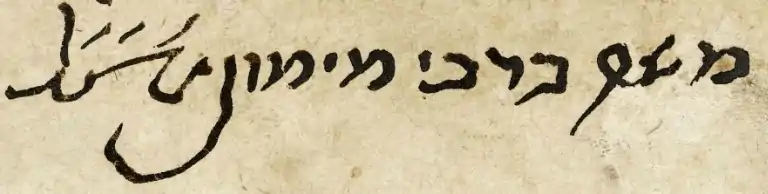 משה ברבי מימון זצ"ל